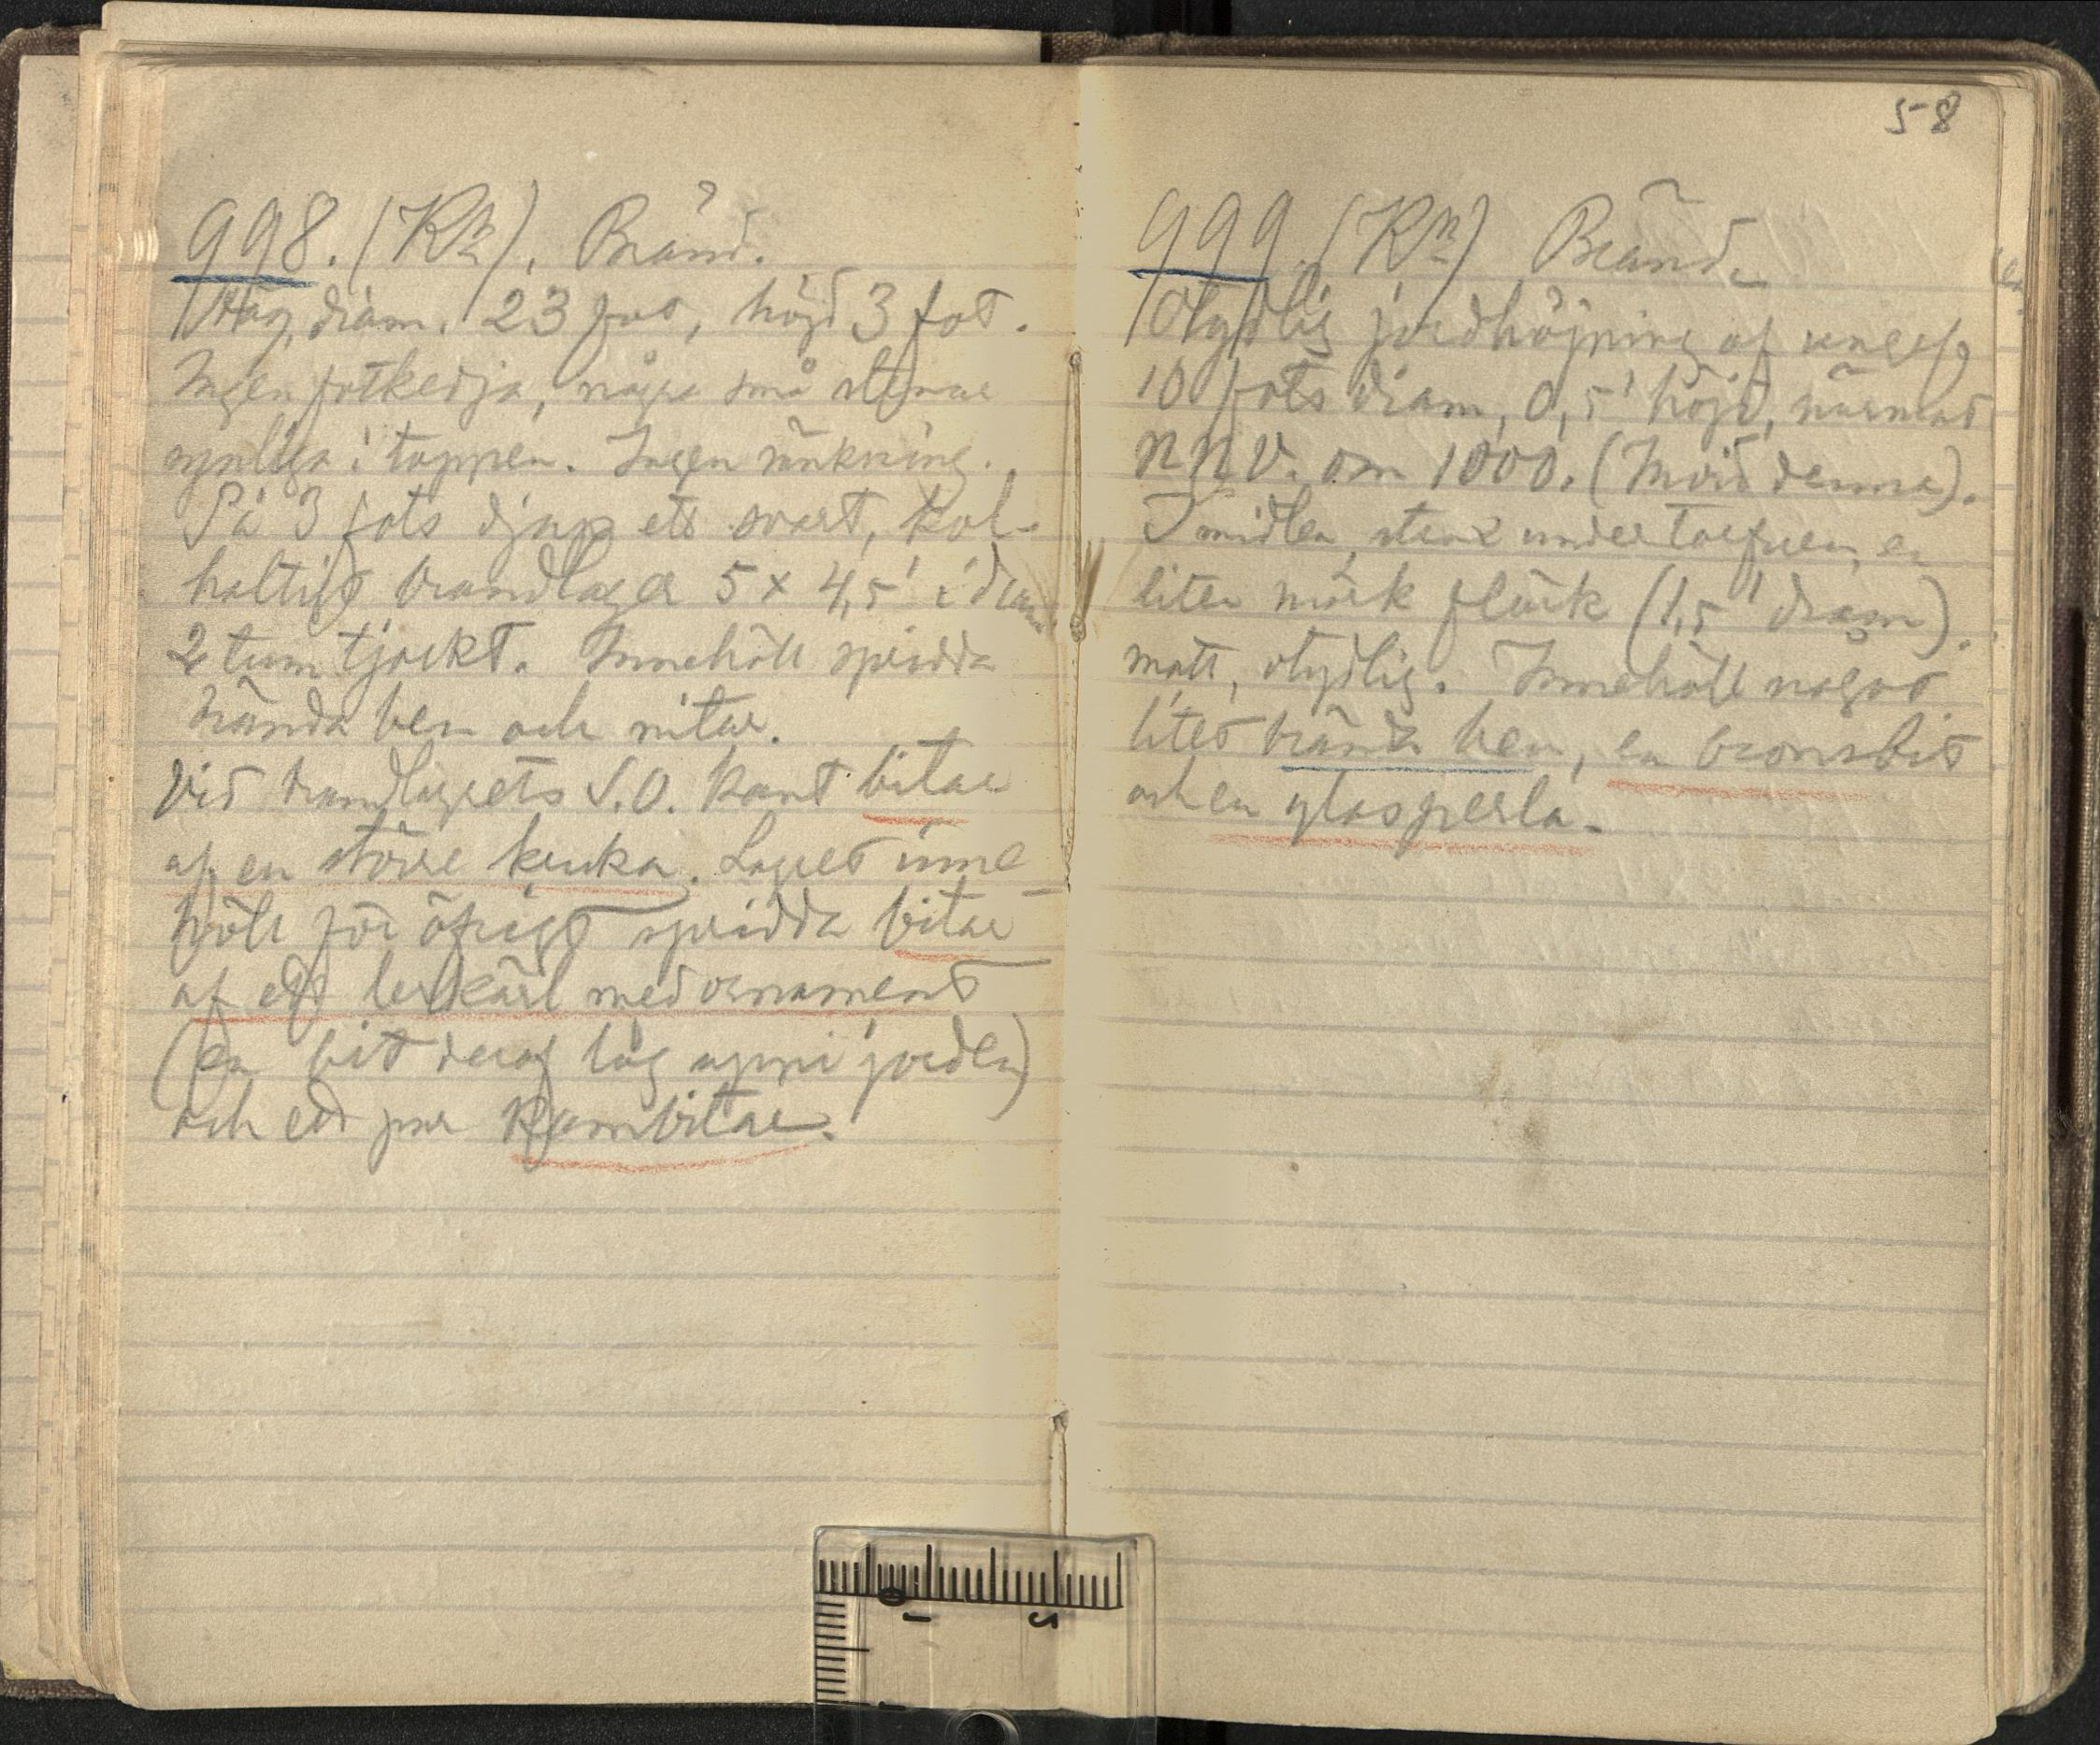 998. (Kn). Bränd.
Hög, diam. 23 fot, höjd 3 fot.
Ingen fotkedja, några små stenar
synliga i toppen. Ingen sänkning.
På 3 fots djup ett svart, kol-
haltigt brandlager 5 x 4,5' i diam
2 tum tjockt. Innehöll spridda
brända ben och nitar.
Vid brandlagrets S.O. kant bitar
af en större kruka. Lagret inne
höll för öfrigt spridda bitar
af ett lerkärl med ornament
(en bit deraf låg uppi jorden)
och ett par kambitar.
58
999. (Kn) Bränd.
Otydlig jordhöjning af ungef.
10 fots diam, 0,5' höjd, närmast
N N V. om 1000. (Invid denna).
I midten, strax under torfven, en
liten mörk fläck (1,5' diam).
matt, otydlig. Innehöll något
litet brända ben, en bronsbit
och en glasperla.